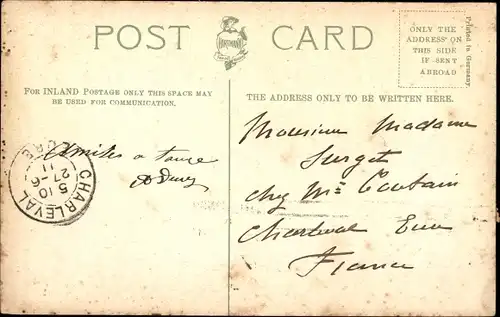 POST CARD
HARTMANN
Printed in Germany
ONLY THE
ADDRESS ON
THIS SIDE
IF SENT
ABROAD
FOR INLAND POSTAGE ONLY THIS SPACE MAY
BE USED FOR COMMUNICATION.
THE ADDRESS ONLY TO BE WRITTEN HERE.
Amitiés a tous
CHARLEVAL
5 10
27 -6
11
EURE
Monsieur Madame
Surget
chez Mr
Charleval Eure
France